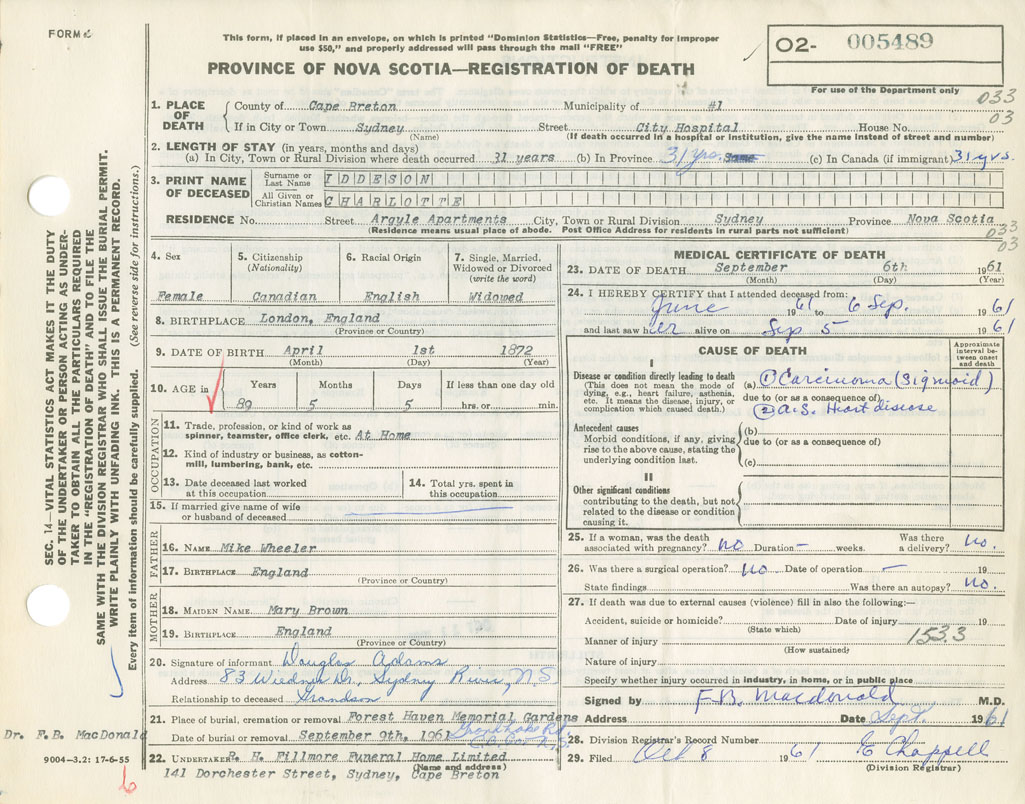 FORM
This form, if placed in an envelope, on which is printed "Dominion Statistics—Free, penalty for improper
use $50," and properly addressed will pass through the mail "FREE"
O2- 005489
PROVINCE OF NOVA SCOTIA—REGISTRATION OF DEATH
For use of the Department only
033
03
1. PLACE OF DEATH
County of Cape Breton Municipality of #1
If in City or Town Sydney Street City Hospital House No.
(Name) (If death occurred in a hospital or institution, give the name instead of street and number)
2. LENGTH OF STAY (in years, months and days)
(a) In City, Town or Rural Division where death occurred 31 years (b) In Province 31 yrs. Same (c) In Canada (if immigrant) 31 yrs.
3. PRINT NAME OF DECEASED
Surname or Last Name IDDESON
All Given or Christian Names CHARLOTTE
RESIDENCE No. Street Argyle Apartments City, Town or Rural Division Sydney Province Nova Scotia
(Residence means usual place of abode. Post Office Address for residents in rural parts not sufficient)
033
03
4. Sex
Female
5. Citizenship
(Nationality)
Canadian
6. Racial Origin
English
7. Single, Married, Widowed or Divorced
(write the word)
Widowed
8. BIRTHPLACE London, England
(Province or Country)
9. DATE OF BIRTH April 1st 1872
(Month) (Day) (Year)
10. AGE in
Years Months Days If less than one day old
89 5 5 hrs. or min.
OCCUPATION
11. Trade, profession, or kind of work as
spinner, teamster, office clerk, etc. At Home
12. Kind of industry or business, as cotton-
mill, lumbering, bank, etc.
13. Date deceased last worked
at this occupation
14. Total yrs. spent in
this occupation
15. If married give name of wife
or husband of deceased
FATHER
16. NAME Mike Wheeler
17. BIRTHPLACE England
(Province or Country)
MOTHER
18. MAIDEN NAME. Mary Brown
19. BIRTHPLACE England
(Province or Country)
20. Signature of informant Douglas Adams
Address 83 Dr., Sydney River, N.S.
Relationship to deceased Grandson
21. Place of burial, cremation or removal Forest Haven Memorial Gardens
Date of burial or removal September 9th, 1961
22. UNDERTAKER R. H. Fillmore Funeral Home Limited
(Name and address)
141 Dorchester Street, Sydney, Cape Breton
MEDICAL CERTIFICATE OF DEATH
23. DATE OF DEATH September 6th 1961
(Month) (Day) (Year)
24. I HEREBY CERTIFY that I attended deceased from:
June 1961 to 6 Sep. 1961
and last saw her alive on Sep 5 1961
CAUSE OF DEATH
Approximate interval between onset and death
I
Disease or condition directly leading to death
(This does not mean the mode of
dying, e.g., heart failure, asthenia,
etc. It means the disease, injury, or
complication which caused death.)
(a) 1 Carcinoma (Sigmoid)
due to (or as a consequence of)
2 A.S. Heart disease
Antecedent causes
Morbid conditions, if any, giving
rise to the above cause, stating the
underlying condition last.
(b)
due to (or as a consequence of)
(c)
II
Other significant conditions
contributing to the death, but not
related to the disease or condition
causing it.
25. If a woman, was the death
associated with pregnancy? no Duration — weeks. Was there a delivery? no.
26. Was there a surgical operation? no Date of operation — 19
State findings Was there an autopsy? no.
27. If death was due to external causes (violence) fill in also the following:—
Accident, suicide or homicide? Date of injury 19
(State which)
Manner of injury 153.3
(How sustained)
Nature of injury
Specify whether injury occurred in industry, in home, or in public place
Signed by F.B. Macdonald M.D.
Address Date Sept. 1961
28. Division Registrar's Record Number
29. Filed Oct 8 1961 E Chappell
(Division Registrar)
SEC. 14—VITAL STATISTICS ACT MAKES IT THE DUTY
OF THE UNDERTAKER OR PERSON ACTING AS UNDER-
TAKER TO OBTAIN ALL THE PARTICULARS REQUIRED
IN THE "REGISTRATION OF DEATH" AND TO FILE THE
SAME WITH THE DIVISION REGISTRAR WHO SHALL ISSUE THE BURIAL PERMIT.
WRITE PLAINLY WITH UNFADING INK. THIS IS A PERMANENT RECORD.
Every item of information should be carefully supplied. (See reverse side for instructions.)
Dr. F.B. MacDonald
9004—3.2: 17-6-55
6